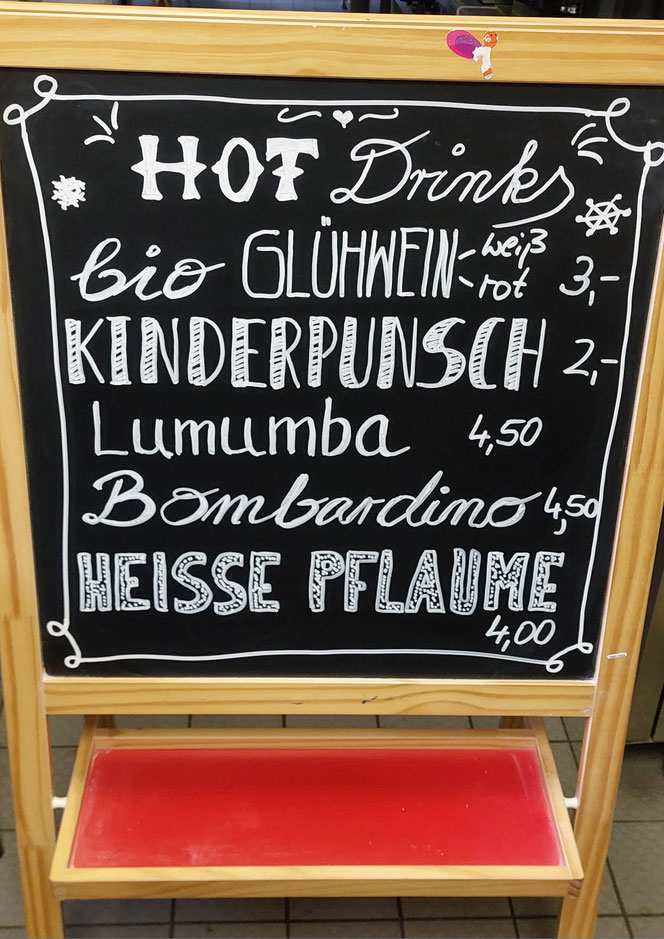 HOT Drinks
bio GLÜHWEIN weiß rot 3,-
KINDERPUNSCH 2,-
Lumumba 4,50
Bombardino 4,50
HEISSE PFLAUME
4,00